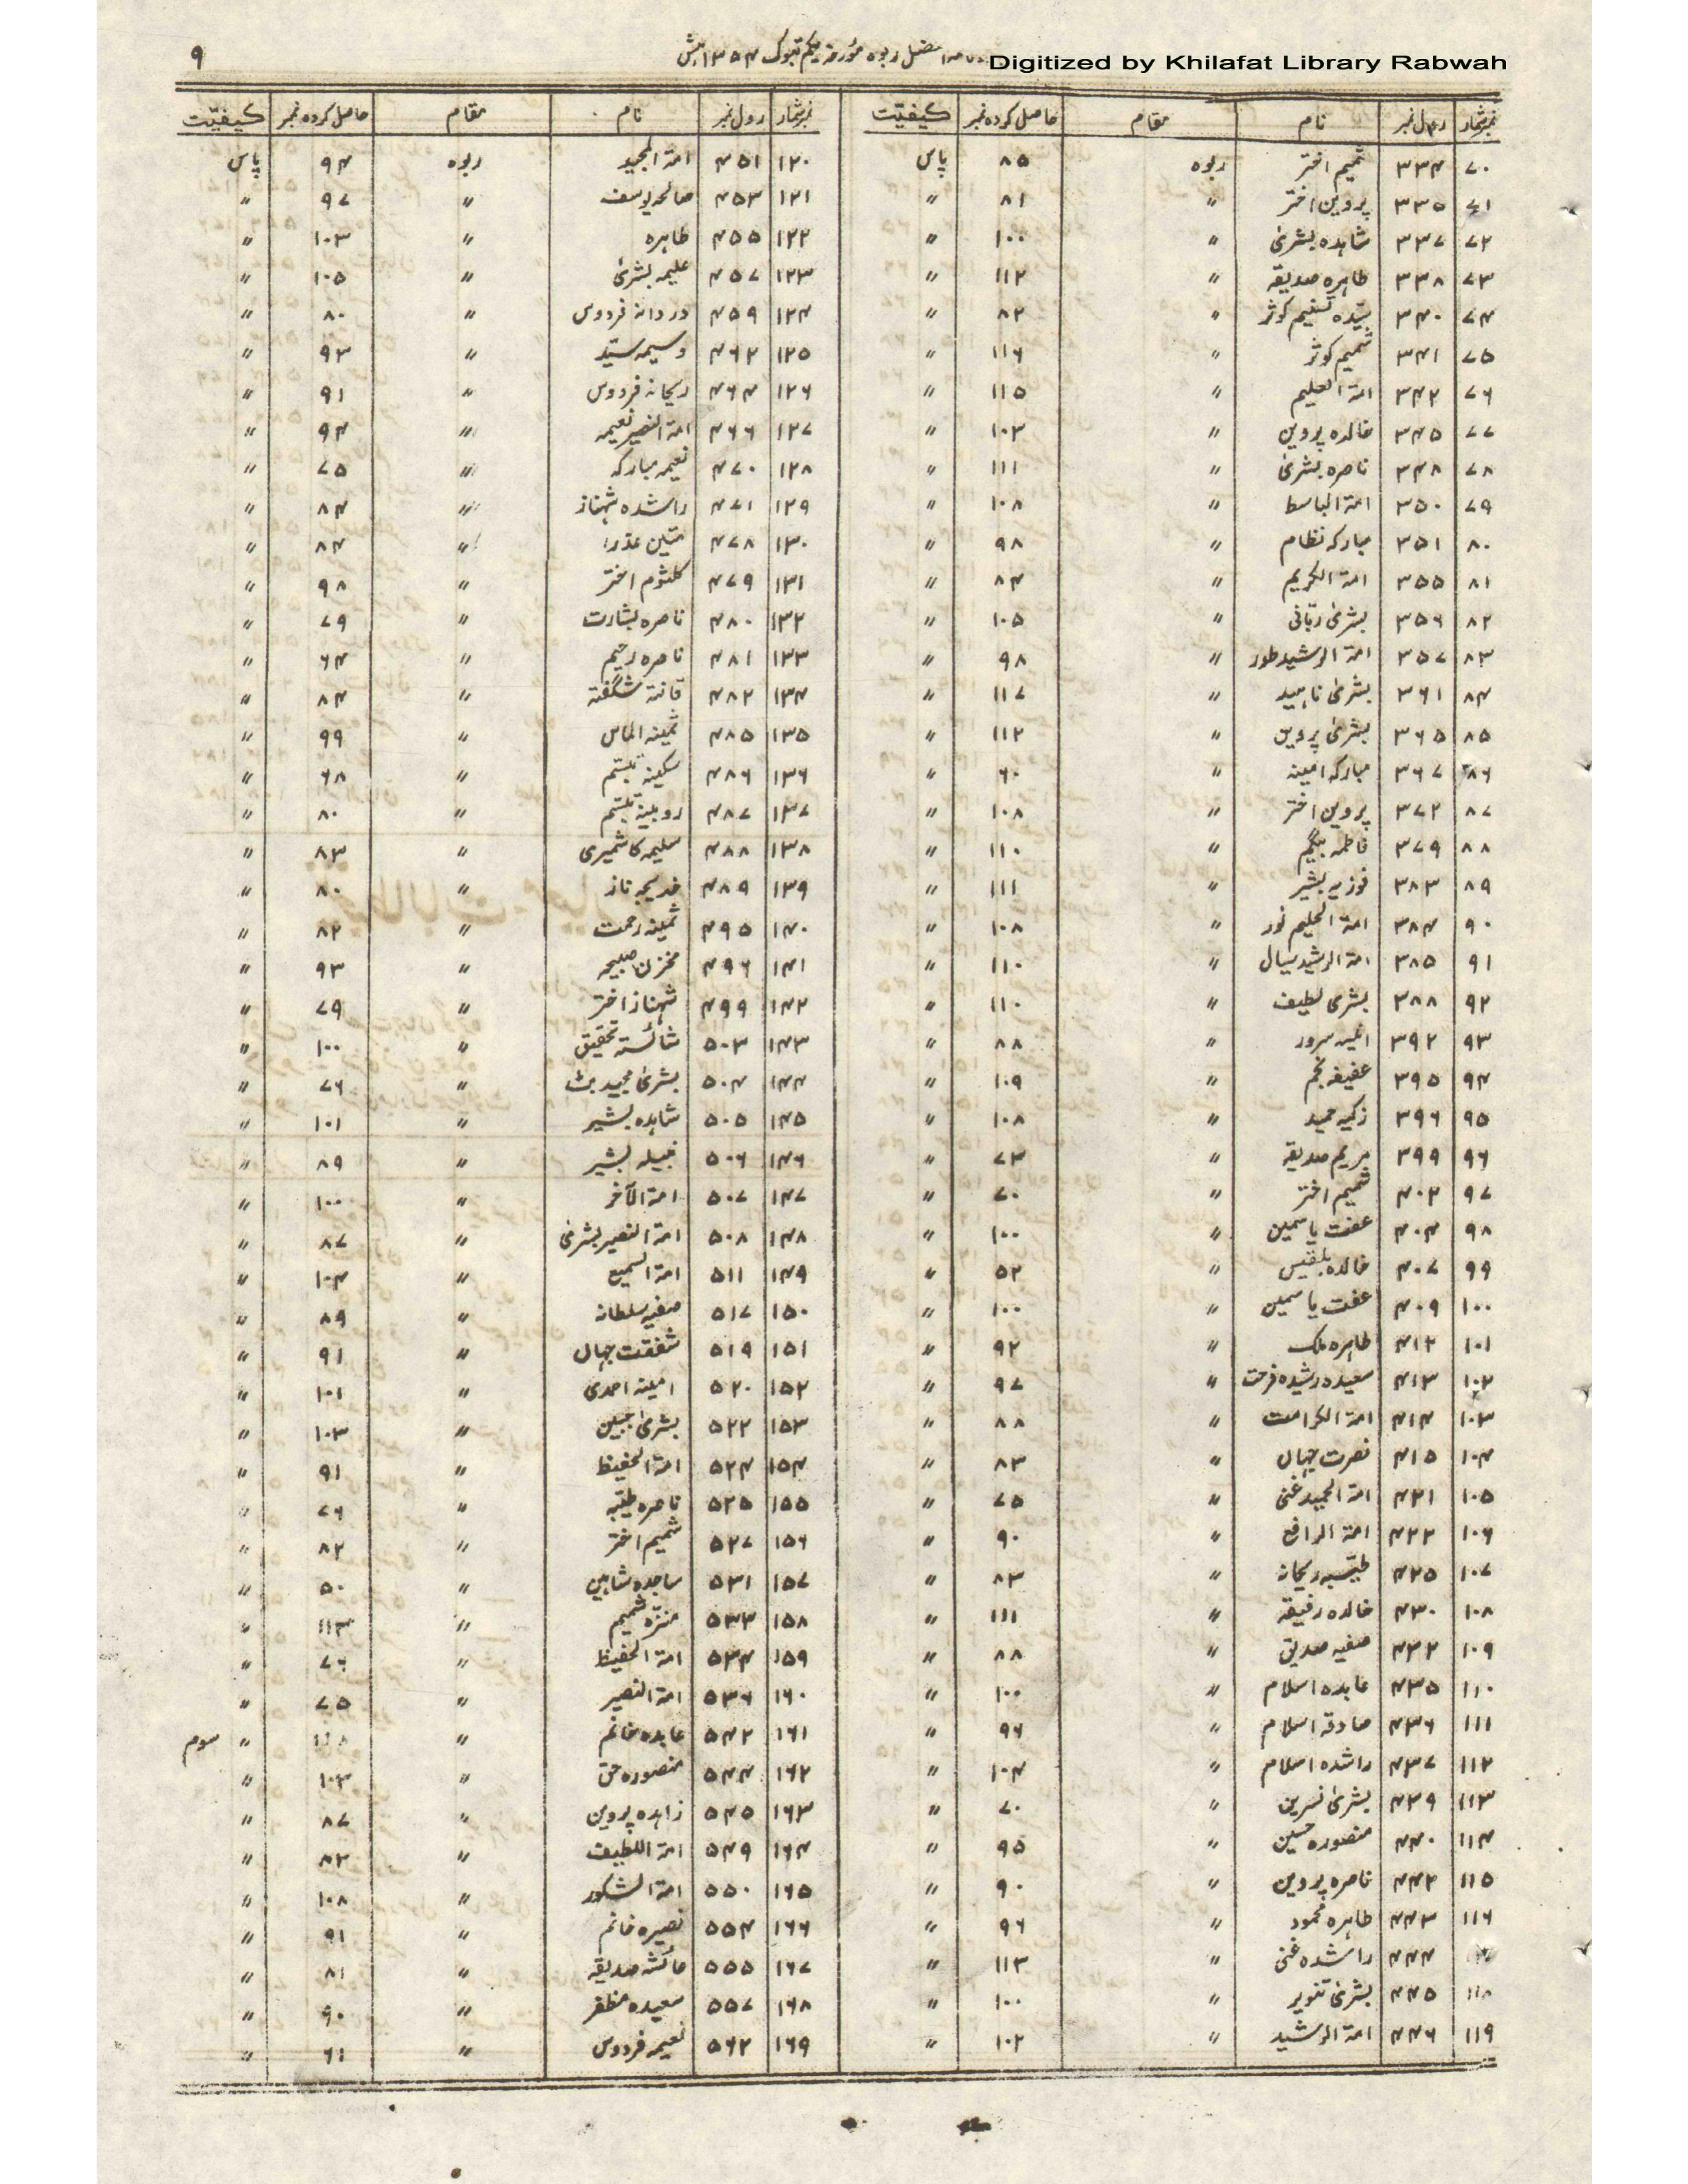 ۹
Digitized by Khilafat Library Rabwah
ربوہ مؤرخہ یکم تبوک ۱۳۵۴ ہش
نمبر شمار رول نمبر نام مقام حاصل کردہ نمبر کیفیّت
۷۰ ۳۳۴ شمیم اختر ربوہ ۸۵ پاس
۷۱ ۳۳۵ پروین اختر 〃 ۸۱ 〃
۷۲ ۳۳۷ شاہدہ بشریٰ 〃 ۱۰۰ 〃
۷۳ ۳۳۸ طاہرہ صدیقہ 〃 ۱۱۲ 〃
۷۴ ۳۴۰ سیّدہ تسنیم کوثر 〃 ۸۲ 〃
۷۵ ۳۴۱ شمیم کوثر 〃 ۱۱۶ 〃
۷۶ ۳۴۲ امۃ العلیم 〃 ۱۱۵ 〃
۷۷ ۳۴۵ خالدہ پروین 〃 ۱۰۳ 〃
۷۸ ۳۴۸ ناصرہ بشریٰ 〃 ۱۱۱ 〃
۷۹ ۳۵۰ امۃ الباسط 〃 ۱۰۸ 〃
۸۰ ۳۵۱ مبارکہ نظام 〃 ۹۸ 〃
۸۱ ۳۵۵ امۃ الکریم 〃 ۸۴ 〃
۸۲ ۳۵۶ بشریٰ ربّانی 〃 ۱۰۵ 〃
۸۳ ۳۵۷ امۃ الرشید طور 〃 ۹۸ 〃
۸۴ ۳۶۱ بشریٰ ناہید 〃 ۱۱۷ 〃
۸۵ ۳۶۵ بشریٰ پروین 〃 ۱۱۲ 〃
۸۶ ۳۶۷ مبارکہ امینہ 〃 ۶۰ 〃
۸۷ ۳۷۲ پروین اختر 〃 ۱۰۸ 〃
۸۸ ۳۷۹ فاطمہ بیگم 〃 ۱۱۰ 〃
۸۹ ۳۸۳ فوزیہ بشیر 〃 ۱۱۱ 〃
۹۰ ۳۸۴ امۃ الحلیم نور 〃 ۱۰۸ 〃
۹۱ ۳۸۵ امۃ الرشید سیال 〃 ۱۱۰ 〃
۹۲ ۳۸۸ بشریٰ لطیف 〃 ۱۱۰ 〃
۹۳ ۳۹۲ انیسہ سرور 〃 ۸۸ 〃
۹۴ ۳۹۵ عفیفہ نجم 〃 ۱۰۹ 〃
۹۵ ۳۹۶ زکیہ حمید 〃 ۱۰۸ 〃
۹۶ ۳۹۹ مریم صدیقہ 〃 ۷۳ 〃
۹۷ ۴۰۲ شمیم اختر 〃 ۷۰ 〃
۹۸ ۴۰۴ عفت یاسمین 〃 ۱۰۰ 〃
۹۹ ۴۰۷ خالدہ بلقیس 〃 ۵۲ 〃
۱۰۰ ۴۰۹ عفت یاسمین 〃 ۱۰۰ 〃
۱۰۱ ۴۱۲ طاہرہ ملک 〃 ۹۲ 〃
۱۰۲ ۴۱۳ سعیدہ رشیدہ فرحت 〃 ۹۷ 〃
۱۰۳ ۴۱۴ امۃ الکرامت 〃 ۸۸ 〃
۱۰۴ ۴۱۵ نصرت جہاں 〃 ۸۳ 〃
۱۰۵ ۴۲۱ امۃ الحمید غنی 〃 ۷۵ 〃
۱۰۶ ۴۲۲ امۃ الرافع 〃 ۹۰ 〃
۱۰۷ ۴۲۵ طیّبہ ریحانہ 〃 ۸۳ 〃
۱۰۸ ۴۳۰ خالدہ رفیقہ 〃 ۱۱۱ 〃
۱۰۹ ۴۳۲ صفیہ صدیق 〃 ۸۸ 〃
۱۱۰ ۴۳۵ عابدہ اسلام 〃 ۱۰۰ 〃
۱۱۱ ۴۳۶ صادقہ اسلام 〃 ۹۶ 〃
۱۱۲ ۴۳۷ راشدہ اسلام 〃 ۱۰۴ 〃
۱۱۳ ۴۳۹ بشریٰ نسرین 〃 ۷۰ 〃
۱۱۴ ۴۴۰ منصورہ حسین 〃 ۹۵ 〃
۱۱۵ ۴۴۲ ناصرہ پروین 〃 ۹۰ 〃
۱۱۶ ۴۴۳ طاہرہ محمود 〃 ۹۶ 〃
۴۴۴ راشدہ غنی 〃 ۱۱۳ 〃
۱۱۸ ۴۴۵ بشریٰ تنویر 〃 ۱۰۰ 〃
۱۱۹ ۴۴۶ امۃ الرشید 〃 ۱۰۲ 〃
نمبر شمار رول نمبر نام مقام حاصل کردہ نمبر کیفیّت
۱۲۰ ۴۵۱ امۃ المجید ربوہ ۹۴ پاس
۱۲۱ ۴۵۳ صالحہ یوسف 〃 ۹۷ 〃
۱۲۲ ۴۵۵ طاہرہ 〃 ۱۰۳ 〃
۱۲۳ ۴۵۷ علیمہ بشریٰ 〃 ۱۰۵ 〃
۱۲۴ ۴۵۹ دردانہ فردوس 〃 ۸۰ 〃
۱۲۵ ۴۶۲ وسیمہ سیّد 〃 ۹۳ 〃
۱۲۶ ۴۶۴ ریحانہ فردوس 〃 ۹۱ 〃
۱۲۷ ۴۶۶ امۃ النصیر نعیمہ 〃 ۹۴ 〃
۱۲۸ ۴۷۰ نعیمہ مبارکہ 〃 ۷۵ 〃
۱۲۹ ۴۷۱ راشدہ شہناز 〃 ۸۴ 〃
۱۳۰ ۴۷۸ متین عذرا 〃 ۸۴ 〃
۱۳۱ ۴۷۹ کلثوم اختر 〃 ۹۸ 〃
۱۳۲ ۴۸۰ ناصرہ بشارت 〃 ۷۹ 〃
۱۳۳ ۴۸۱ ناصرہ رحیم 〃 ۶۴ 〃
۱۳۴ ۴۸۲ قانتہ شگفتہ 〃 ۸۴ 〃
۱۳۵ ۴۸۵ ثمینہ الماس 〃 ۹۹ 〃
۱۳۶ ۴۸۶ سکینہ تبسّم 〃 ۶۸ 〃
۱۳۷ ۴۸۷ روبینہ تبسّم 〃 ۸۰ 〃
۱۳۸ ۴۸۸ سلیمہ کاشمیری 〃 ۸۳ 〃
۱۳۹ ۴۸۹ خدیجہ ناز 〃 ۸۰ 〃
۱۴۰ ۴۹۵ ثمینہ رحمت 〃 ۸۲ 〃
۱۴۱ ۴۹۶ مخزن صبیحہ 〃 ۹۳ 〃
۱۴۲ ۴۹۹ شہناز اختر 〃 ۷۹ 〃
۱۴۳ ۵۰۳ شائستہ تحقیق 〃 ۱۰۰ 〃
۱۴۴ ۵۰۴ بشریٰ مجید بٹ 〃 ۷۶ 〃
۱۴۵ ۵۰۵ شاہدہ بشیر 〃 ۱۰۱ 〃
۱۴۶ ۵۰۶ نبیلہ بشیر 〃 ۸۹ 〃
۱۴۷ ۵۰۷ امۃ الآخر 〃 ۱۰۰ 〃
۱۴۸ ۵۰۸ امۃ النصیر بشریٰ 〃 ۸۷ 〃
۱۴۹ ۵۱۱ امۃ السمیع 〃 ۱۰۴ 〃
۱۵۰ ۵۱۷ صفیہ سلطانہ 〃 ۸۹ 〃
۱۵۱ ۵۱۹ شفقت جہاں 〃 ۹۱ 〃
۱۵۲ ۵۲۰ امینہ احمدی 〃 ۱۰۱ 〃
۱۵۳ ۵۲۲ بشریٰ جبین 〃 ۱۰۳ 〃
۱۵۴ ۵۲۴ امۃ الحفیظ 〃 ۹۱ 〃
۱۵۵ ۵۲۵ ناصرہ طیّبہ 〃 ۷۶ 〃
۱۵۶ ۵۲۷ شمیم اختر 〃 ۸۲ 〃
۱۵۷ ۵۳۱ ساجدہ شاہین 〃 ۵۰ 〃
۱۵۸ ۵۳۳ منزّہ شمیم 〃 ۱۱۳ 〃
۱۵۹ ۵۳۴ امۃ الحفیظ 〃 ۷۶ 〃
۱۶۰ ۵۳۶ امۃ النصیر 〃 ۷۵ 〃
۱۶۱ ۵۴۲ عابدہ خانم 〃 〃 سوم
۱۶۲ ۵۴۴ منصورہ حق 〃 ۱۰۳ 〃
۱۶۳ ۵۴۵ زاہدہ پروین 〃 ۸۷ 〃
۱۶۴ ۵۴۹ امۃ اللطیف 〃 ۸۳ 〃
۱۶۵ ۵۵۰ امۃ الشکور 〃 ۱۰۸ 〃
۱۶۶ ۵۵۴ نصیرہ خانم 〃 ۹۱ 〃
۱۶۷ ۵۵۵ عائشہ صدیقہ 〃 ۸۱ 〃
۱۶۸ ۵۵۷ سعیدہ مظفر 〃 ۹۰ 〃
۱۶۹ ۵۶۲ نعیمہ فردوس 〃 ۶۱ 〃